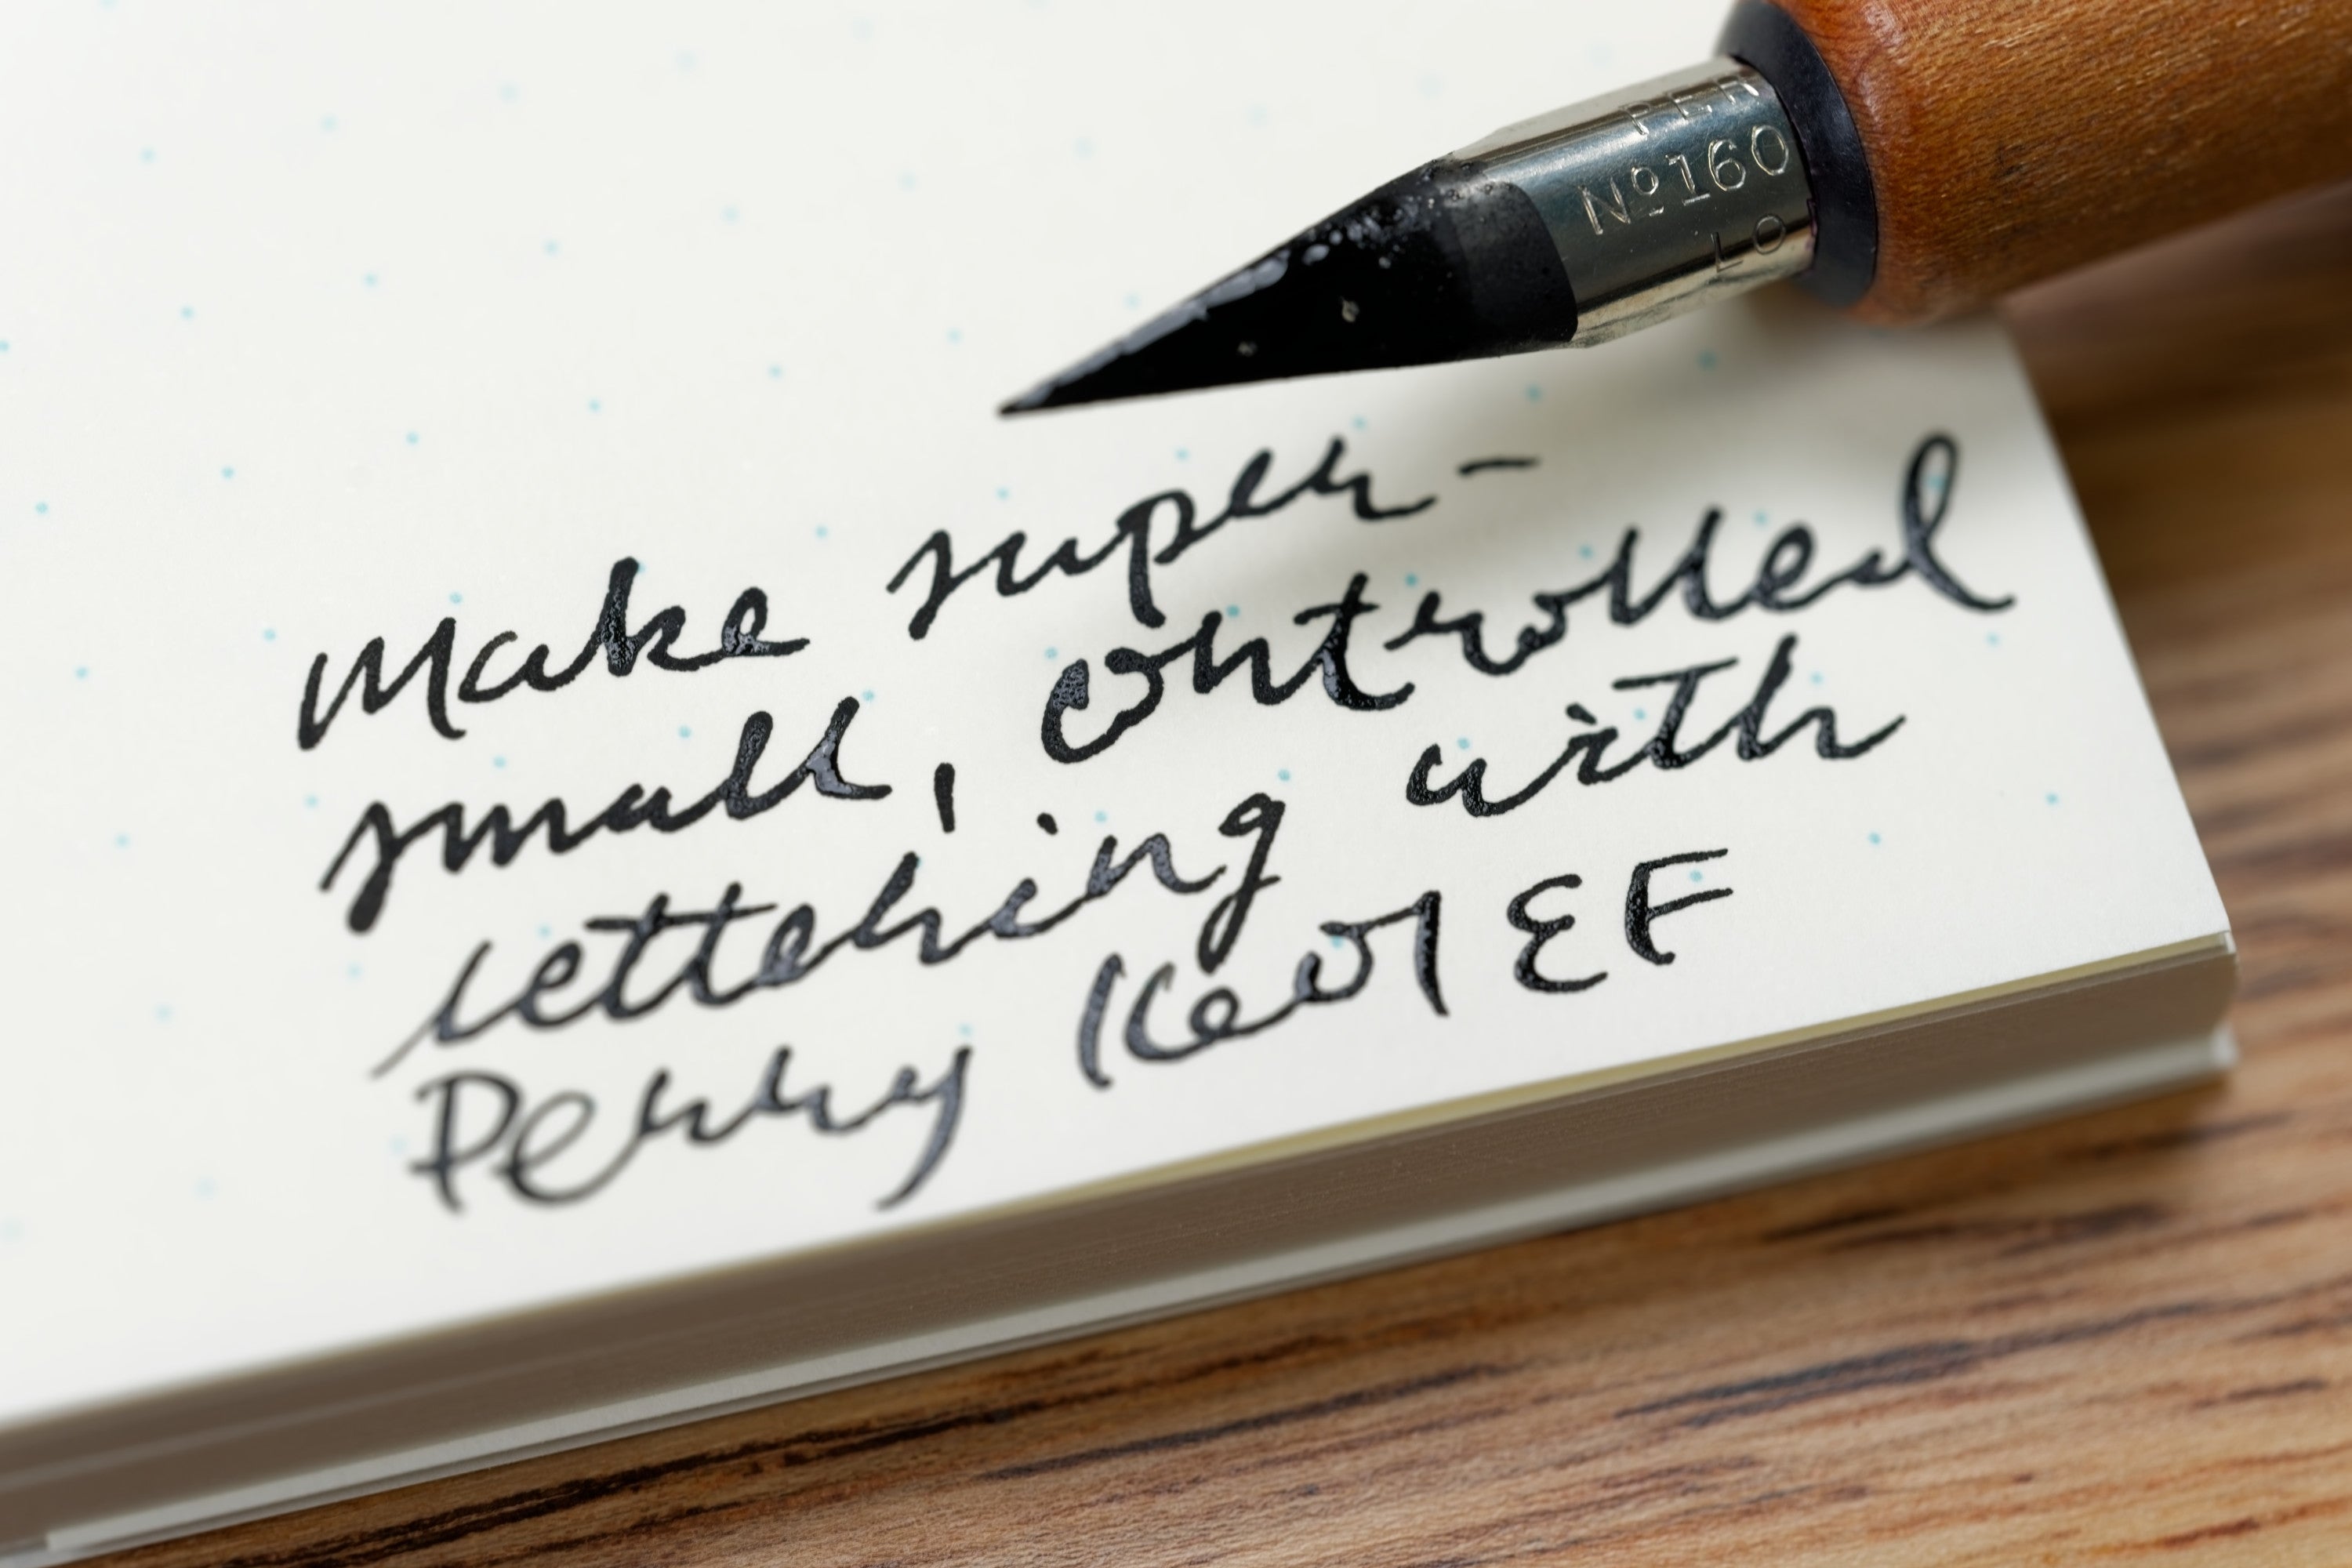 PER
Nº160
LO
Make super-
small, controlled
lettering with
Perry Kewl EF